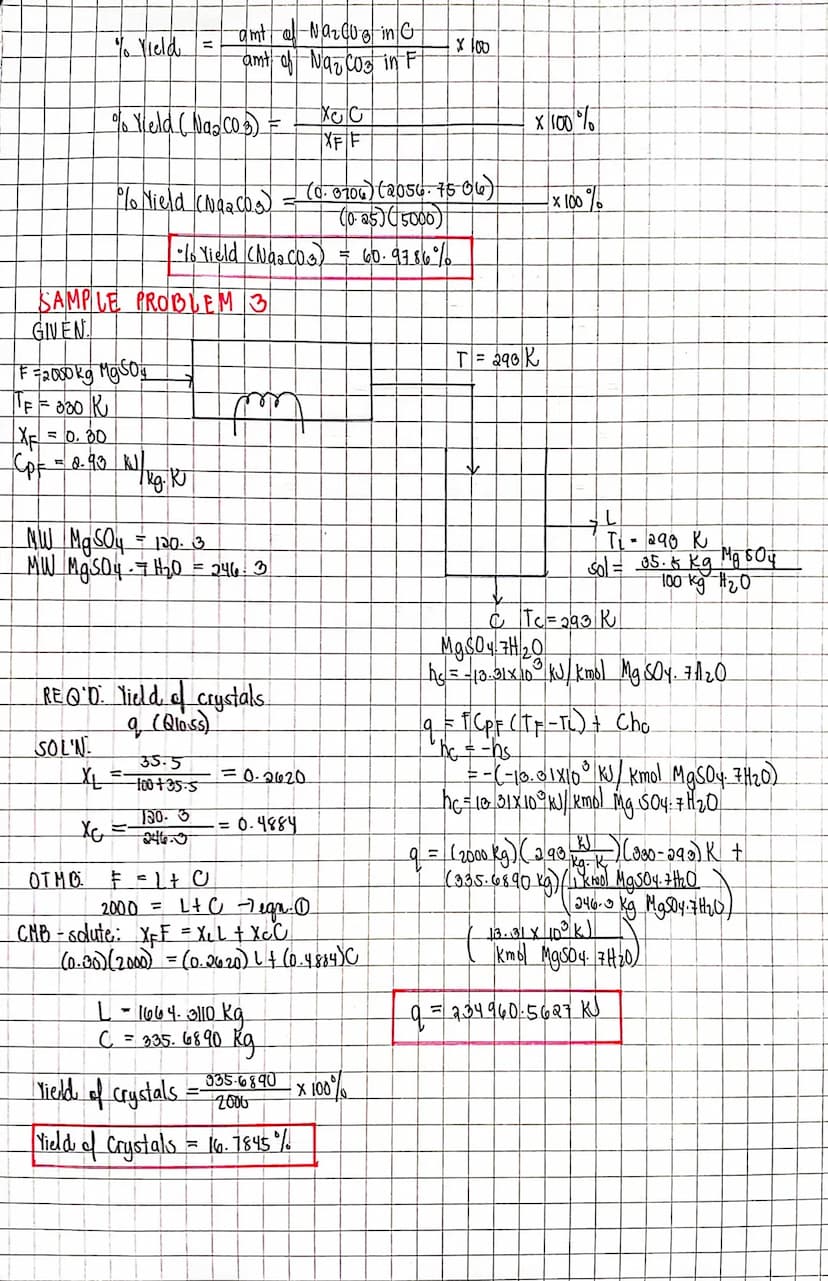 % Yield = amt of Na2CO3 in C / amt of Na2CO3 in F x 100
% Yield (Na2CO3) = XC C / XF F x 100%
% Yield (Na2CO3) = (0.3706)(2056.7506) / (0.25)(5000) x 100%
% Yield (Na2CO3) = 60.9786%
SAMPLE PROBLEM 3
GIVEN:
F = 2000 kg MgSO4
TF = 330 K
XF = 0.30
CPF = 2.93 KJ/kg.K
T = 293 K
MW MgSO4 = 120.3
MW MgSO4.7H2O = 246.3
L
TL = 293 K
sol = 35.5 kg MgSO4 / 100 kg H2O
C TC = 293 K
MgSO4.7H2O
hs = -13.31x10³ KJ/kmol MgSO4.7H2O
REQ'D: Yield of crystals
q (Qloss)
SOL'N:
XL = 35.5 / 100+35.5 = 0.2620
XC = 120.3 / 246.3 = 0.4884
OTMB: F = L + C
2000 = L + C → eqn. ①
CMB - solute: XFF = XLL + XCC
(0.30)(2000) = (0.2620)L + (0.4884)C
L = 1664.3110 kg
C = 335.6890 kg
Yield of crystals = 335.6890 / 2000 x 100%
Yield of Crystals = 16.7845%
q = FCPF (TF - TL) + Chc
hc = -hs
= -(-13.31x10³ KJ/kmol MgSO4.7H2O)
hc = 13.31x10³ KJ/kmol MgSO4.7H2O
q = (2000 kg)(2.93 KJ/kg.K)(330-293)K +
(335.6890 kg)(1 kmol MgSO4.7H2O / 246.3 kg MgSO4.7H2O)
(13.31 x 10³ KJ / kmol MgSO4.7H2O)
q = 234960.5627 KJ